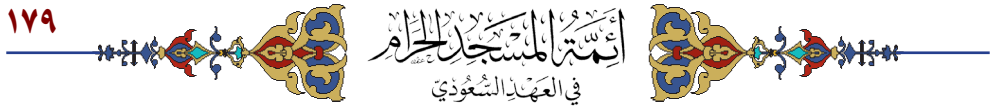 ١٧٩
أَئِمَّةُ المَسْجِدِ الحَرَامِ
في العَهْدِ السُّعُوديّ